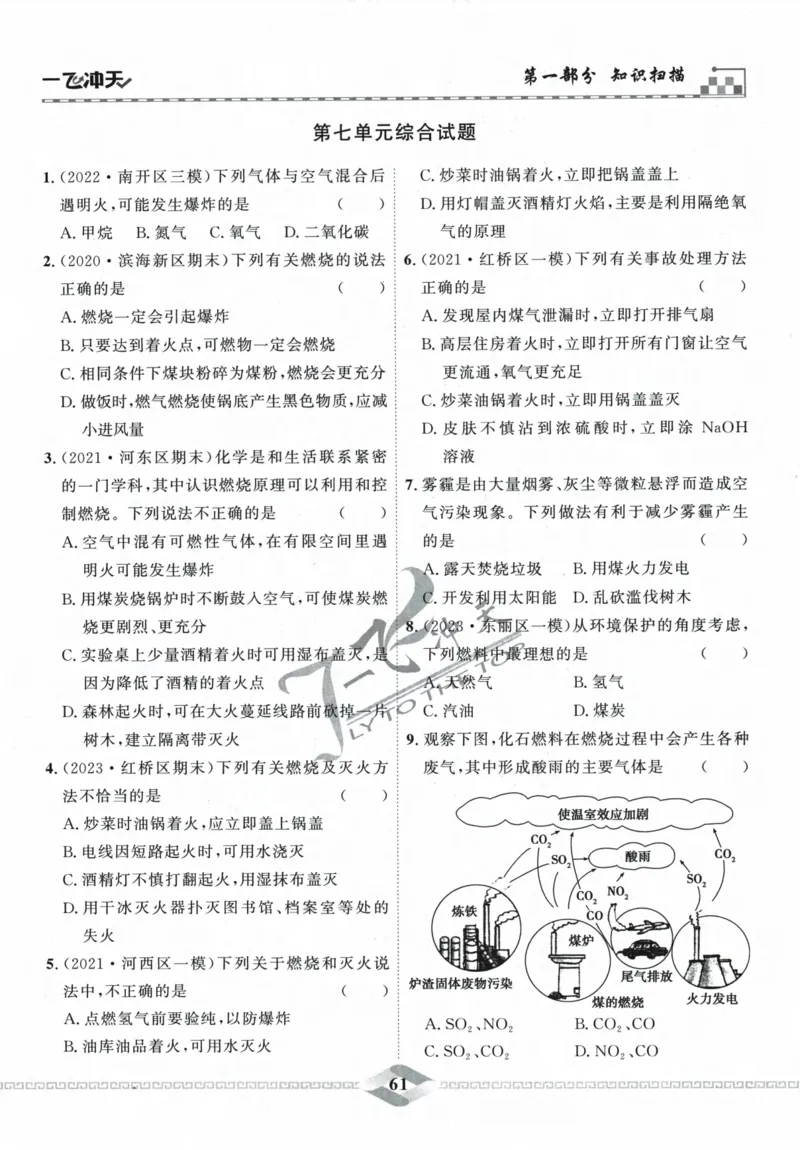 一飞冲天
第一部分 知识扫描
第七单元综合试题
1.(2022·南开区三模)下列气体与空气混合后
遇明火,可能发生爆炸的是 ( )
A.甲烷 B.氮气 C.氧气 D.二氧化碳
2.(2020·滨海新区期末)下列有关燃烧的说法
正确的是 ( )
A.燃烧一定会引起爆炸
B.只要达到着火点,可燃物一定会燃烧
C.相同条件下煤块粉碎为煤粉,燃烧会更充分
D.做饭时,燃气燃烧使锅底产生黑色物质,应减
小进风量
3.(2021·河东区期末)化学是和生活联系紧密
的一门学科,其中认识燃烧原理可以利用和控
制燃烧。下列说法不正确的是 ( )
A.空气中混有可燃性气体,在有限空间里遇
明火可能发生爆炸
B.用煤炭烧锅炉时不断鼓入空气,可使煤炭燃
烧更剧烈、更充分
C.实验桌上少量酒精着火时可用湿布盖灭,是
因为降低了酒精的着火点
D.森林起火时,可在大火蔓延线路前砍掉一片
树木,建立隔离带灭火
4.(2023·红桥区期末)下列有关燃烧及灭火方
法不恰当的是 ( )
A.炒菜时油锅着火,应立即盖上锅盖
B.电线因短路起火时,可用水浇灭
C.酒精灯不慎打翻起火,用湿抹布盖灭
D.用干冰灭火器扑灭图书馆、档案室等处的
失火
5.(2021·河西区一模)下列关于燃烧和灭火说
法中,不正确的是 ( )
A.点燃氢气前要验纯,以防爆炸
B.油库油品着火,可用水灭火
C.炒菜时油锅着火,立即把锅盖盖上
D.用灯帽盖灭酒精灯火焰,主要是利用隔绝氧
气的原理
6.(2021·红桥区一模)下列有关事故处理方法
正确的是 ( )
A.发现屋内煤气泄漏时,立即打开排气扇
B.高层住房着火时,立即打开所有门窗让空气
更流通,氧气更充足
C.炒菜油锅着火时,立即用锅盖盖灭
D.皮肤不慎沾到浓硫酸时,立即涂 NaOH
溶液
7.雾霾是由大量烟雾、灰尘等微粒悬浮而造成空
气污染现象。下列做法有利于减少雾霾产生
的是 ( )
A.露天焚烧垃圾 B.用煤火力发电
C.开发利用太阳能 D.乱砍滥伐树木
8.(2023·东丽区一模)从环境保护的角度考虑,
下列燃料中最理想的是 ( )
A.天然气 B.氢气
C.汽油 D.煤炭
9.观察下图,化石燃料在燃烧过程中会产生各种
废气,其中形成酸雨的主要气体是 ( )
使温室效应加剧
CO₂
SO₂
酸雨
CO₂
SO₂
CO₂
NO₂
CO
炼铁
煤炉
炉渣固体废物污染
尾气排放
煤的燃烧
火力发电
A.SO₂、NO₂ B.CO₂、CO
C.SO₂、CO₂ D.NO₂、CO
61
一飞冲天
FLY TO THE TOP